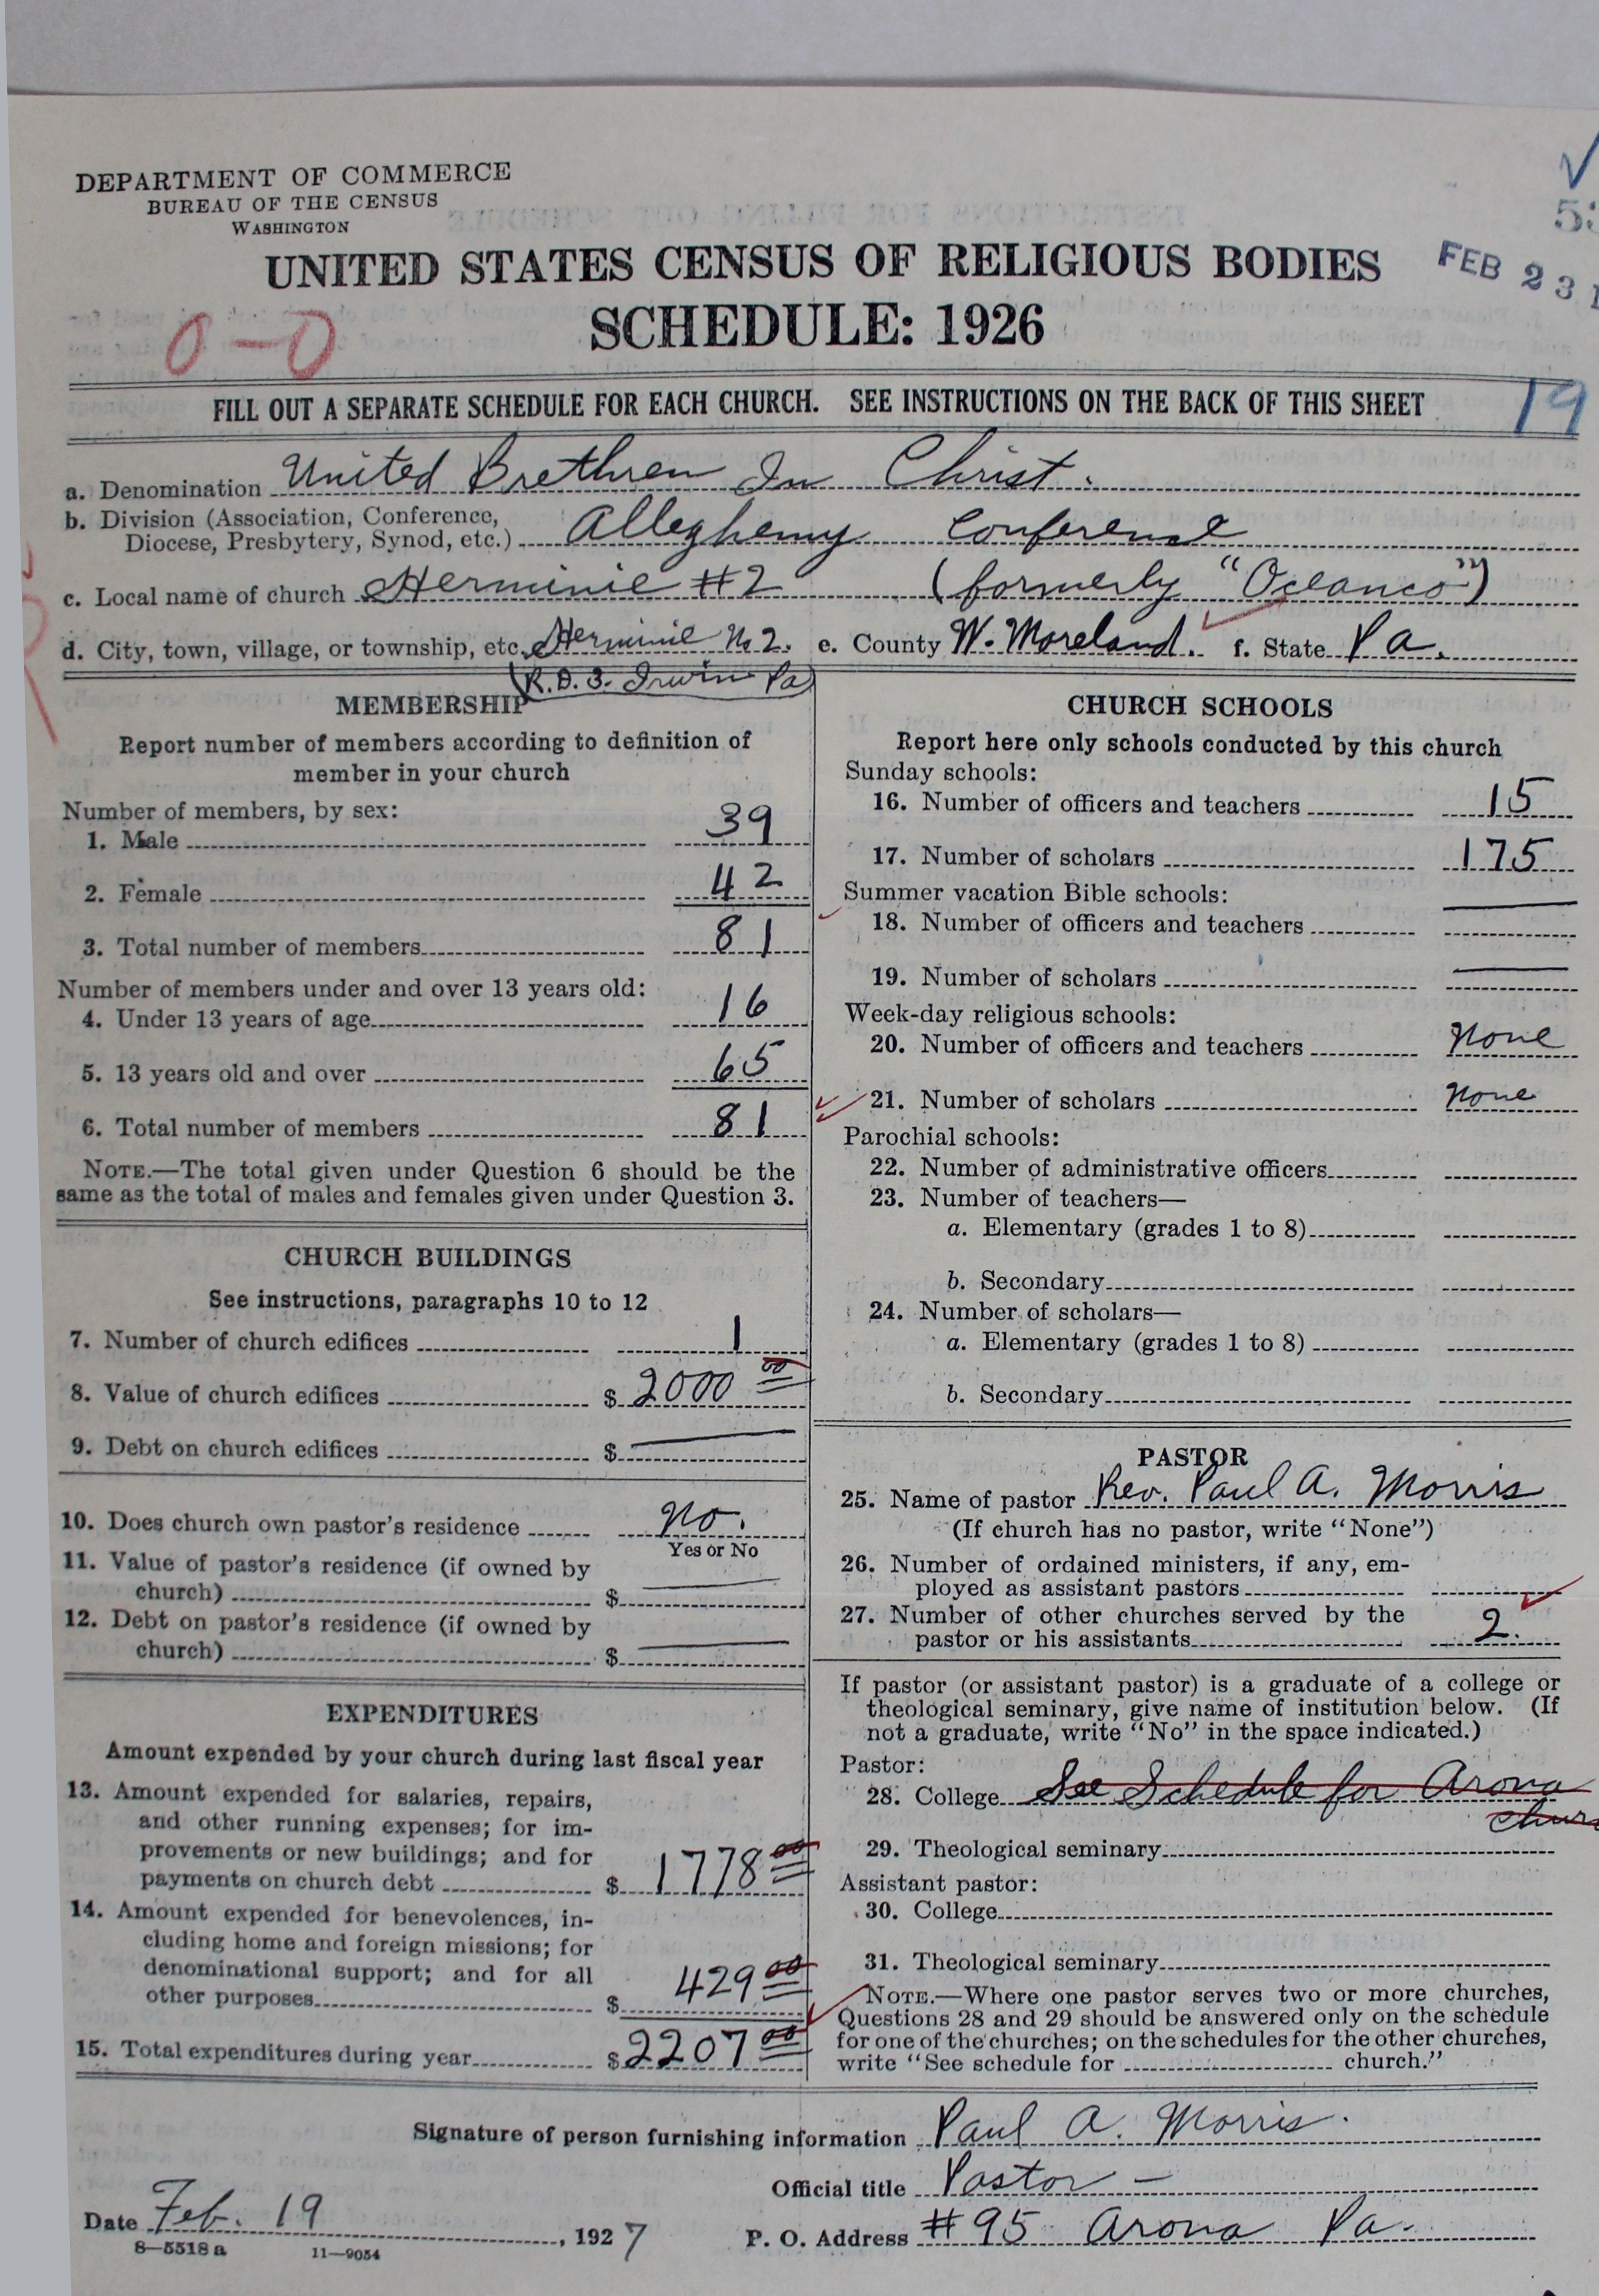 DEPARTMENT OF COMMERCE
BUREAU OF THE CENSUS
WASHINGTON
UNITED STATES CENSUS OF RELIGIOUS BODIES
SCHEDULE: 1926
FEB 23
0-0
FILL OUT A SEPARATE SCHEDULE FOR EACH CHURCH. SEE INSTRUCTIONS ON THE BACK OF THIS SHEET
19
a. Denomination United Brethren In Christ.
b. Division (Association, Conference,
Diocese, Presbytery, Synod, etc.) Allegheny Conference
c. Local name of church Herminie #2 (formerly "Oceanco")
d. City, town, village, or township, etc. Herminie No 2. e. County W. Moreland. f. State Pa.
(R.D.3. Irwin Pa)
MEMBERSHIP
Report number of members according to definition of
member in your church
Number of members, by sex:
1. Male 39
2. Female 42
3. Total number of members 81
Number of members under and over 13 years old:
4. Under 13 years of age 16
5. 13 years old and over 65
6. Total number of members 81
NOTE.—The total given under Question 6 should be the
same as the total of males and females given under Question 3.
CHURCH BUILDINGS
See instructions, paragraphs 10 to 12
7. Number of church edifices 1
8. Value of church edifices $ 2000 00
9. Debt on church edifices $ —
10. Does church own pastor's residence No.
Yes or No
11. Value of pastor's residence (if owned by
church) $ —
12. Debt on pastor's residence (if owned by
church) $ —
EXPENDITURES
Amount expended by your church during last fiscal year
13. Amount expended for salaries, repairs,
and other running expenses; for im-
provements or new buildings; and for
payments on church debt $ 1778 00
14. Amount expended for benevolences, in-
cluding home and foreign missions; for
denominational support; and for all
other purposes $ 429 00
15. Total expenditures during year $ 2207 00
CHURCH SCHOOLS
Report here only schools conducted by this church
Sunday schools:
16. Number of officers and teachers 15
17. Number of scholars 175
Summer vacation Bible schools:
18. Number of officers and teachers —
19. Number of scholars —
Week-day religious schools:
20. Number of officers and teachers None
21. Number of scholars None
Parochial schools:
22. Number of administrative officers
23. Number of teachers—
a. Elementary (grades 1 to 8)
b. Secondary
24. Number of scholars—
a. Elementary (grades 1 to 8)
b. Secondary
PASTOR
25. Name of pastor Rev. Paul A. Morris
(If church has no pastor, write "None")
26. Number of ordained ministers, if any, em-
ployed as assistant pastors
27. Number of other churches served by the
pastor or his assistants 2.
If pastor (or assistant pastor) is a graduate of a college or
theological seminary, give name of institution below. (If
not a graduate, write "No" in the space indicated.)
Pastor:
28. College See Schedule for Arona
29. Theological seminary
Assistant pastor:
30. College
31. Theological seminary
NOTE.—Where one pastor serves two or more churches,
Questions 28 and 29 should be answered only on the schedule
for one of the churches; on the schedules for the other churches,
write "See schedule for church."
Signature of person furnishing information Paul A. Morris.
Official title Pastor —
Date Feb. 19, 1927 P. O. Address #95 Arona Pa.
8—5518 a 11—9054